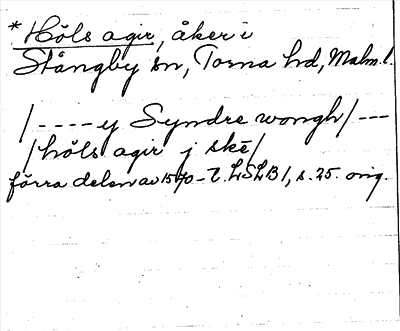 * Höls agir, åker i
Stångby sn, Torna hd, Malm. l.
/----y Syndre wongh/---
/höls agir j skē/
förra delen av 1570-t. LSLB 1, s. 25. orig.